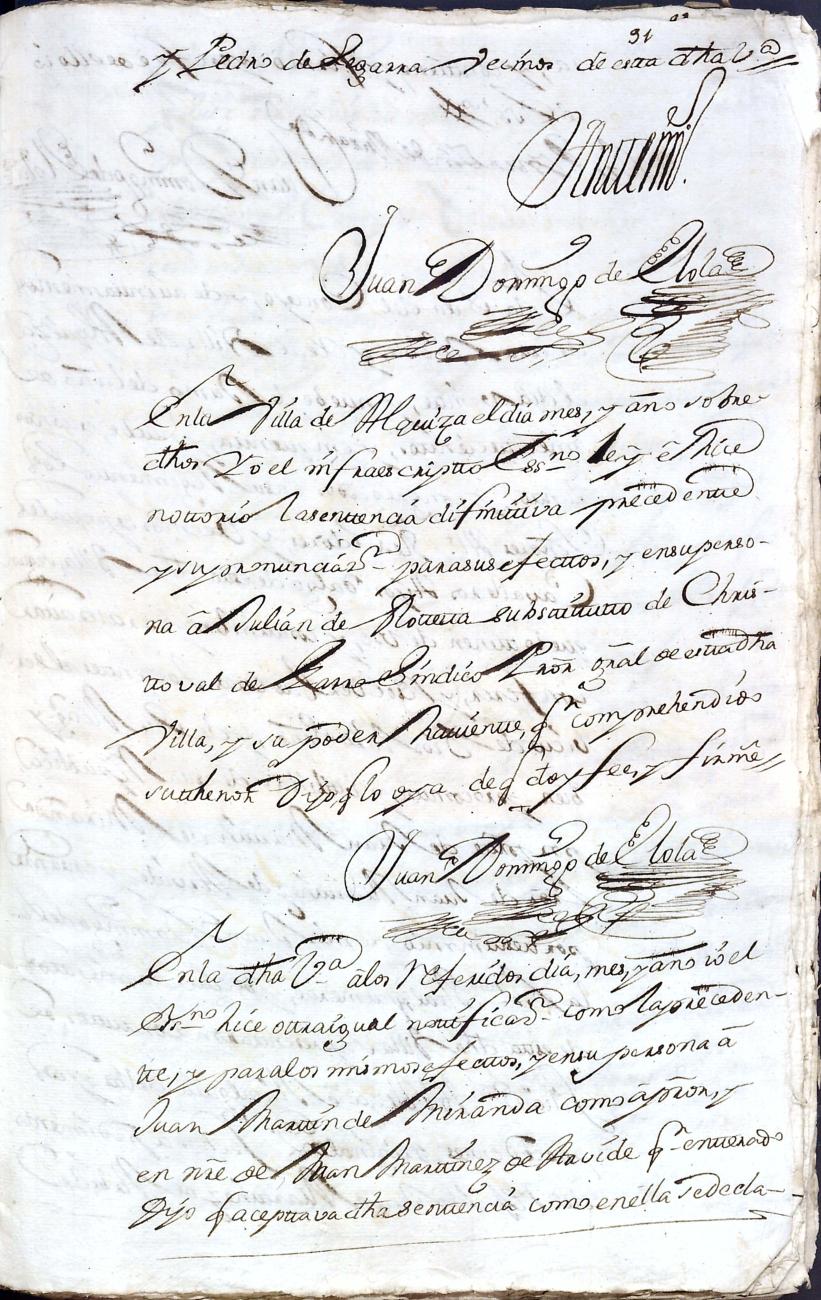 31
y Pedro de Legarra vecinos de esta dha V.ª
Antemi.
Juan Domingo de Elola
En la Villa de Alquiza el dia mes, y año sobre-
dhos Yo el infraescripto Ess.no ley e hice
nottorio la sentencia difinitiva precedente
y su pronunciaz.n para sus efecttos, y en su perso-
na â Julian de Rotteta substitutto de Chris-
ttoval de Sindico Pror. gral de esta dha
Villa, y su poder haviente, q.n comprehendido
su thenor Dijo, q lo oya de q doy fee, y firme
Juan Domingo de Elola
En la dha V.ª â los referidos dia, mes, y año io el
Ess.no hice ottra igual nottificaz.n como la preceden-
te, y para los mismos efecttos, y en su persona â
Juan Martin de Miranda como âpror, y
en nre de Juan Martinez de Atavide q.n entterado
Dijo q aceptava dha sentencia como en ella se decla-